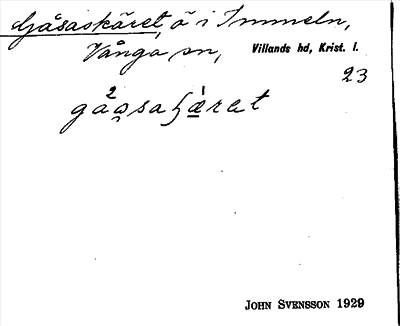 Gåsaskäret, ö i Immeln,
Vånga sn, Villands hd, Krist. l.
23
John Svensson 1929